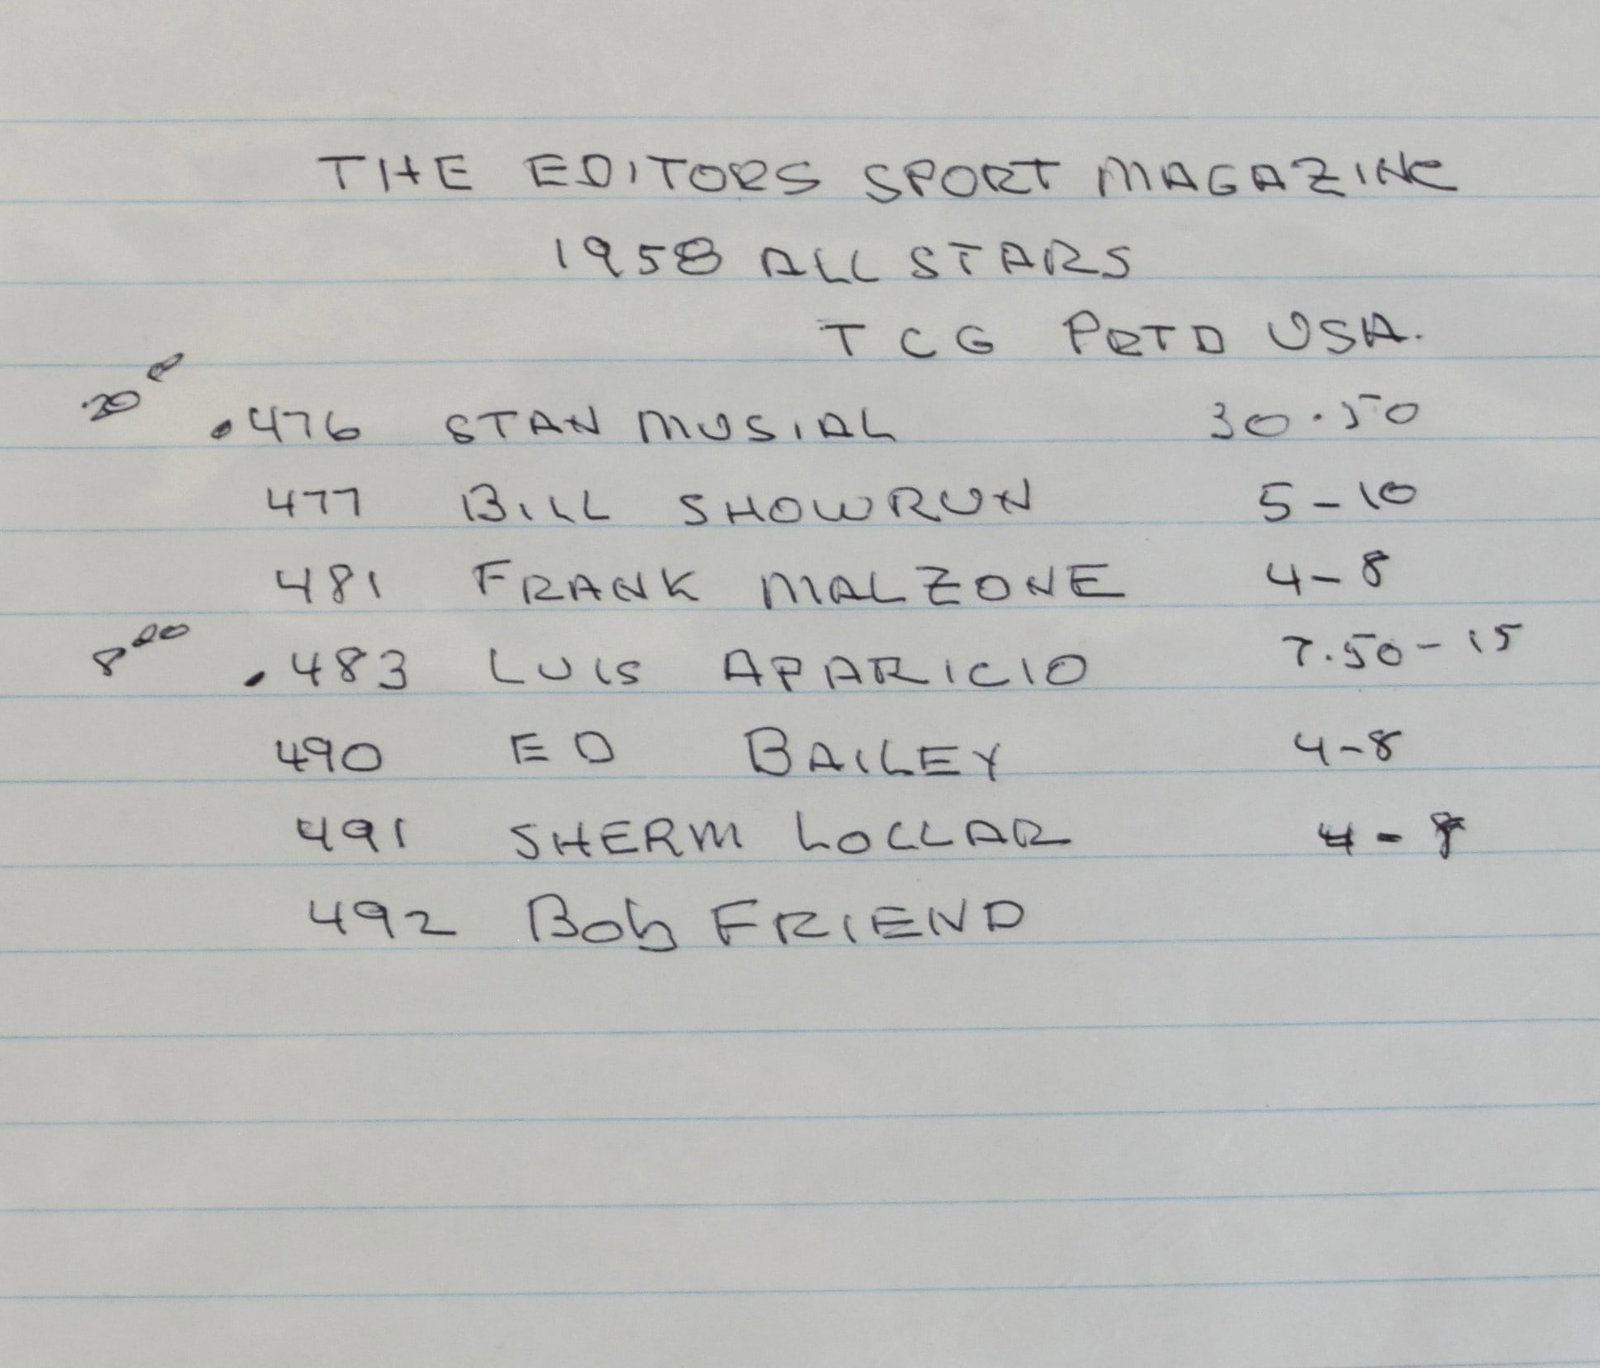 THE EDITORS SPORT MAGAZINE
1958 ALL STARS
TCG PRTD USA.
.476 STAN MUSIAL 30.50
477 BILL SHOWRUN 5-10
481 FRANK MALZONE 4-8
8 00 .483 LUIS APARICIO 7.50-15
490 ED BAILEY 4-8
491 SHERM LOLLAR 4-8
492 Bob FRIEND